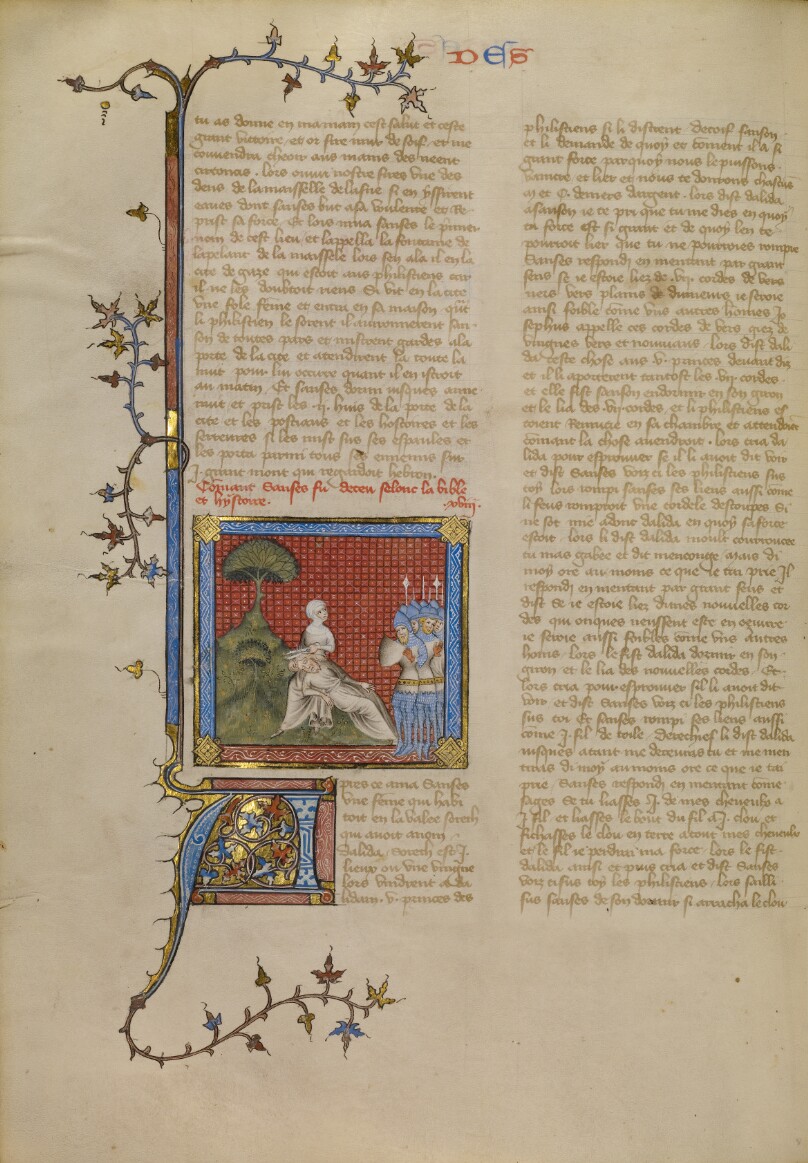 DES
tu as donne en ma main cest salut et ceste
grant victoire et or sire muir de soif et me
convendra cheoir aus mains des neent
circoncis. lors ouvri nostre sires une des
dens de la maisselle de lasne si en yssirent
eaues dont sanses but a sa voulente et re
prist sa force. Et lors mua sanses le premier
nom de cest lieu et lappella la fontaine de
lapelant de la maissele lors sen ala il en la
cite de gaze qui estoit aus philistiens car
il ne les doubtoit riens Si vit en la cite
une fole feme et entra en sa maison. q̃nt
li philistien le sorent il avironnerent san
son de toutes pars et mistrent gardes a la
porte de la cite et atendirent la toute la
nuit pour lui occirre quant il en istroit
au matin. Et sanses dormi iusques a mie
nuit et prist les .ij. huis de la porte de la
cite et les postiaus et les et les
serreures si les mist sus ses espaules et
les porta parmi tous ses ennemis sur
.j. grant mont qui regardoit hebron.
Comant Sanses fu deceu selonc la bible
et hystoire. .xviij.
Apres ce ama Sanses
une feme qui habi
toit en la valee sorech
qui avoit a nom
Dalida. Sorech est .j.
lieux ou une vingne
lors vindrent a da
lidam .v. princes des
philistiens si li distrent decoif sanson
et li demande de quoy et coment il a si
grant force par quoy nous le puissons
vaintre et lier et nous te donrons chascun
.m. et .c. deniers dargent. lors dist dalida
a sanson ie te pri que tu me dies en quoy
ta force est si grant et de quoy len te
pourroit lier que tu ne pourroies rompre
Sanses respondi en mentant par grant
sens se ie estoie liez de .vij. cordes de vers
ners vers plains de ie seroie
aussi foible come uns autres homes Jo
sephus appelle ces cordes de vers
vingnes vers et nouviaus. lors dist dali
da ceste chose aus .v. princes devant diz
et il li aporterent tantost les .vij. cordes.
et elle fist sanson endormir en son giron
et le lia des .vij. cordes. et li philistiens es
toient en sa chambre et attendoient
comant la chose avendroit. lors cria da
lida pour esprouver se il li avoit dit voir
et dist Sanses voiz ci les philistiens sus
toy lors rompi sanses ses liens aussi come
li feus romproit une cordele destoupes Si
ne sot mie adonc dalida en quoy sa force
estoit. lors li dist dalida moult courroucee
tu mas gabee et dit mençonge. Mais di
moy ore au moins ce que ie tai prie Jl
respondi en mentant par grant sens et
dist Se ie estoie liez dunes nouvelles cor
des qui onques neussent este en oeuvre
ie seroie aussi foibles come uns autres
homs. lors le fist dalida dormir en son
giron et le lia des nouvelles cordes. Et
lors cria pour esprouver sil li avoit dit
voir et dist Sanses voiz ci les philistiens
sus toi Et sanses rompi ses liens aussi
come .j. fil de toile. Derechief li dist dalida
iusques a tant me decevras tu et me men
tiras di moy au moins ore ce que ie tai
prie. Sanses respondi en mentant come
sages Se tu liasses .vj. de mes cheveuls a
.j. fil et liasses le bout du fil a .j. clou et
fichasses le clou en terre atout mes cheveuls
et le fil ie perdrai ma force. lors le fist
dalida ainsi et puis cria et dist Sanses
voiz ci sus toy les philistiens. lors sailli
sus sanses de son dormir si arracha le clou